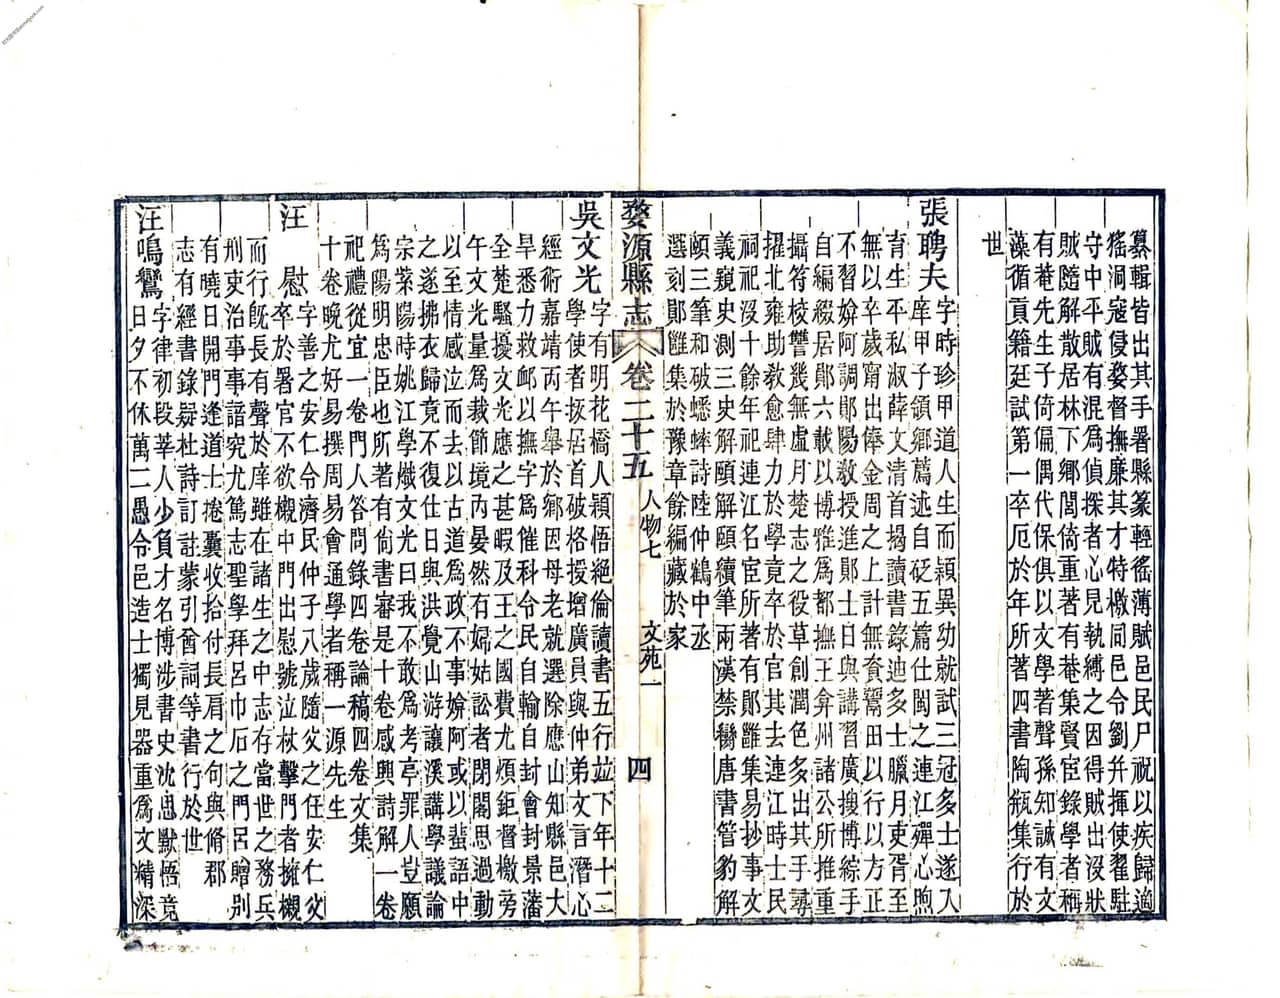 纂輯皆出其手署縣篆輕徭薄賦邑民尸祝以疾歸適
猺洞寇侵婺督撫廉其才特檄同邑令劉井揮使翟駐
守中平賊有混爲偵探者心見執縛之因得賊出沒狀
賊隨解散居林下鄉閭倚重著有菴集賢宦錄學者稱
有菴先生子倚偏偶代保俱以文學著聲孫知誠有文
藻循貢籍廷試第一卒厄於年所著四書陶瓶集行於
世
張聘夫字時珍甲道人生而穎異幼就試三冠多士遂入
庠甲子領鄉薦述自砭五篇仕閩之連江殫心煦
育生平私淑薛文清首揭讀書錄迪多士臘月吏胥至
無以卒歲甯出俸金周之上計無資鬻田以行以方正
不習媕阿調鄖陽教授進鄖士日與講習廣搜博綜手
自編綴居鄖六載以博雅爲都撫王弇州諸公所推重
攝符校讐幾無虛月楚志之役草創潤色多出其手尋
擢北雍助教愈肆力於學竟卒於官其去連江時士民
祠祀沒十餘年祀連江名宦所著有鄖雝集易抄事文
義窺史測三史解頤解頤續筆兩漢禁臠唐書管豹解
頤三筆和破蟋蟀詩陸仲鶴中丞
選刻鄖雝集於豫章餘編藏於家
婺源縣志 卷二十五 人物七 文苑一 四
吳文光字有明花橋人穎悟絕倫讀書五行竝下年十二
學使者拔居首破格授增廣員與仲弟文言潛心
經術嘉靖丙午舉於鄉因母老就選除應山知縣邑大
旱悉力救䘏以撫字爲催科令民自輸自封會封景藩
全楚騷擾文光應之甚暇及王之國費尤煩鉅督檄旁
午文光量爲裁節境內晏然有婦姑訟者閉閣思過動
以至情感泣而去以古道爲政不事媕阿或以蜚語中
之遂拂衣歸竟不復仕日與洪覺山游讓溪講學議論
宗紫陽時姚江學熾文光曰我不敢爲考亭罪人豈願
爲陽明忠臣也所著有尙書審是十卷感興詩解一卷
祀禮從宜一卷門人答問錄四卷論稿四卷文集
十卷晚尤好易撰周易會通學者稱一源先生
汪 慰字善之安仁令濟民仲子八歲隨父之任安仁父
卒於署官不欲櫬中門出慰號泣杖擊門者擁櫬
而行旣長有聲於庠雖在諸生之中志存當世之務兵
刑吏治事事諳究尤篤志聖學拜呂巾石之門呂贈別
有曉日開門逢道士捲囊收拾付長肩之句與脩郡
志有經書錄疑杜詩訂註蒙引酋詞等書行於世
汪鳴鸞字律初段莘人少負才名博涉書史沈思默悟竟
日夕不休萬二愚令邑造士獨見器重爲文精深